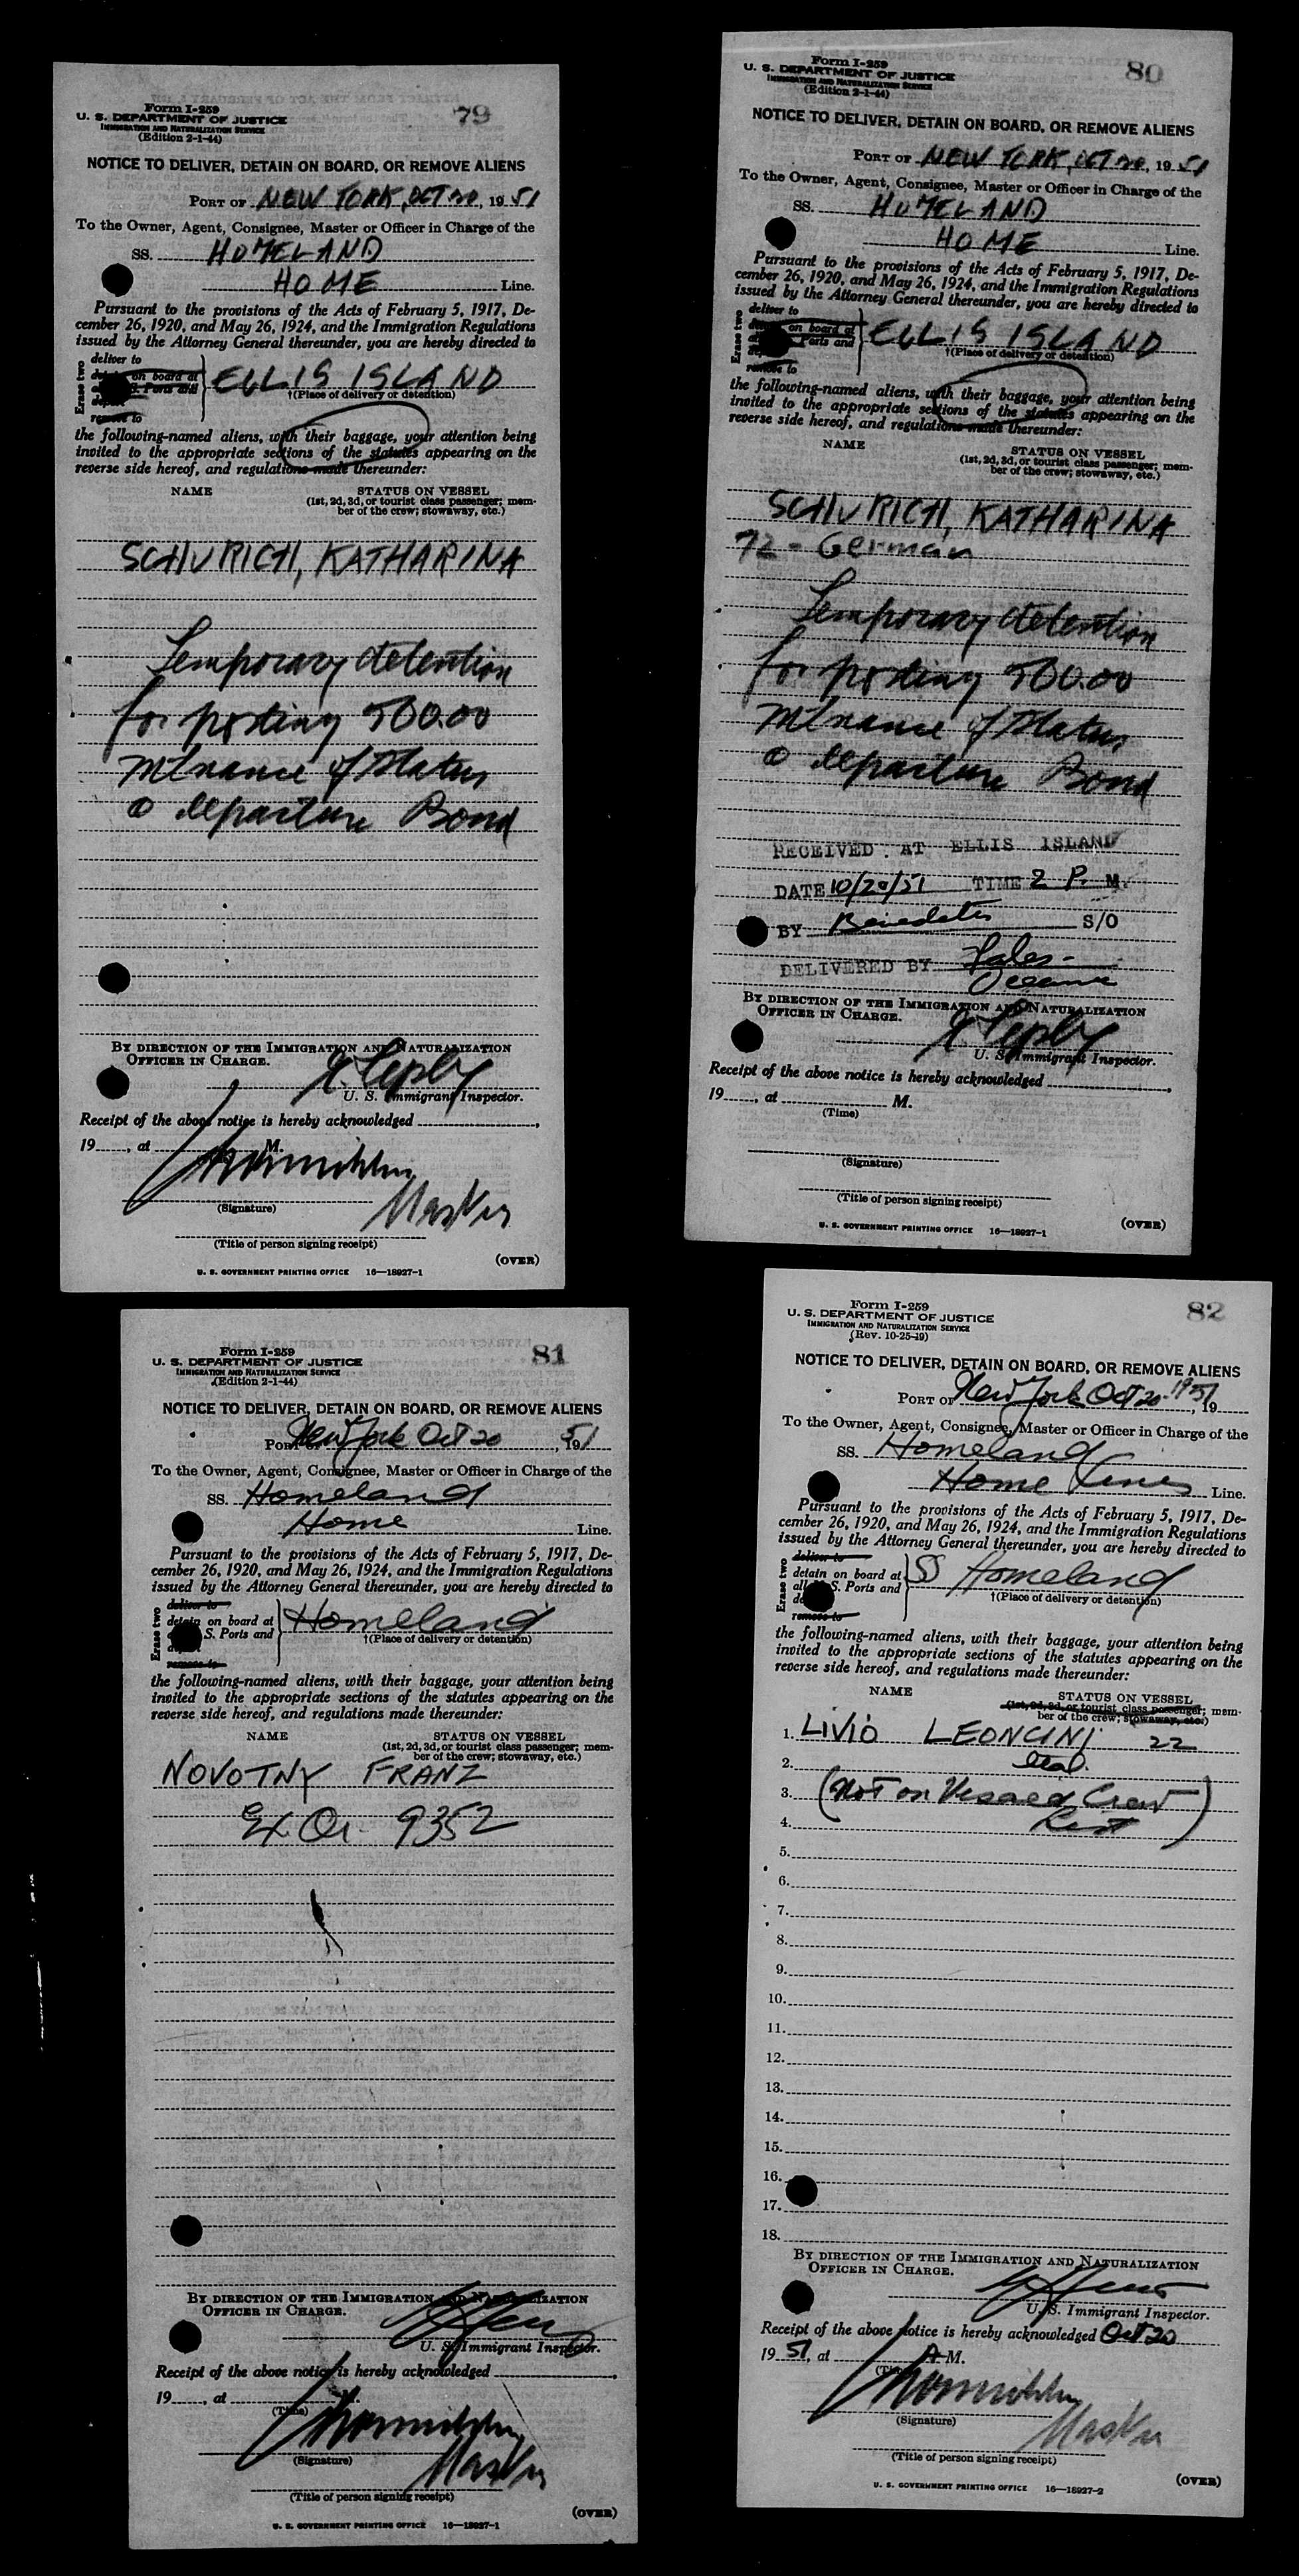 Form I-259
79
U. S. DEPARTMENT OF JUSTICE
IMMIGRATION AND NATURALIZATION SERVICE
(Edition 2-1-44)
NOTICE TO DELIVER, DETAIN ON BOARD, OR REMOVE ALIENS
PORT OF NEW YORK, OCT 20, 1951
To the Owner, Agent, Consignee, Master or Officer in Charge of the
SS. HOMELAND
HOME Line.
Pursuant to the provisions of the Acts of February 5, 1917, De-
cember 26, 1920, and May 26, 1924, and the Immigration Regulations
issued by the Attorney General thereunder, you are hereby directed to
Erase two
deliver to
on board at
S. Ports and
remove to
ELLIS ISLAND
†(Place of delivery or detention)
the following-named aliens, with their baggage, your attention being
invited to the appropriate sections of the statutes appearing on the
reverse side hereof, and regulations made thereunder:
NAME STATUS ON VESSEL
(1st, 2d, 3d, or tourist class passenger; mem-
ber of the crew; stowaway, etc.)
SCHURICH, KATHARINA
Temporary detention
for posting 500.00
Mtnance of Status
@ departure Bond
BY DIRECTION OF THE IMMIGRATION AND NATURALIZATION
OFFICER IN CHARGE.
U. S. Immigrant Inspector.
Receipt of the above notice is hereby acknowledged
19 , at M.
(Signature)
Master
(Title of person signing receipt)
(OVER)
U. S. GOVERNMENT PRINTING OFFICE 16—18927-1
Form I-259
80
U. S. DEPARTMENT OF JUSTICE
IMMIGRATION AND NATURALIZATION SERVICE
(Edition 2-1-44)
NOTICE TO DELIVER, DETAIN ON BOARD, OR REMOVE ALIENS
PORT OF NEW YORK, OCT 20, 1951
To the Owner, Agent, Consignee, Master or Officer in Charge of the
SS. HOMELAND
HOME Line.
Pursuant to the provisions of the Acts of February 5, 1917, De-
cember 26, 1920, and May 26, 1924, and the Immigration Regulations
issued by the Attorney General thereunder, you are hereby directed to
Erase two
deliver to
on board at
Ports and
remove to
ELLIS ISLAND
†(Place of delivery or detention)
the following-named aliens, with their baggage, your attention being
invited to the appropriate sections of the statutes appearing on the
reverse side hereof, and regulations made thereunder:
NAME STATUS ON VESSEL
(1st, 2d, 3d, or tourist class passenger; mem-
ber of the crew; stowaway, etc.)
SCHURICH, KATHARINA
72 - German
Temporary detention
for posting 500.00
Mtnance of Status
@ departure Bond
RECEIVED AT ELLIS ISLAND
DATE 10/20/51 TIME 2 P. M.
BY S/O
DELIVERED BY
BY DIRECTION OF THE IMMIGRATION AND NATURALIZATION
OFFICER IN CHARGE.
U. S. Immigrant Inspector.
Receipt of the above notice is hereby acknowledged
19 , at M.
(Time)
(Signature)
(Title of person signing receipt)
(OVER)
U. S. GOVERNMENT PRINTING OFFICE 16—18927-1
Form I-259
81
U. S. DEPARTMENT OF JUSTICE
IMMIGRATION AND NATURALIZATION SERVICE
(Edition 2-1-44)
NOTICE TO DELIVER, DETAIN ON BOARD, OR REMOVE ALIENS
PORT OF New York Oct 20, 1951
To the Owner, Agent, Consignee, Master or Officer in Charge of the
SS. Homeland
Home Line.
Pursuant to the provisions of the Acts of February 5, 1917, De-
cember 26, 1920, and May 26, 1924, and the Immigration Regulations
issued by the Attorney General thereunder, you are hereby directed to
Erase two
deliver to
detain on board at
S. Ports and
remove to
Homeland
†(Place of delivery or detention)
the following-named aliens, with their baggage, your attention being
invited to the appropriate sections of the statutes appearing on the
reverse side hereof, and regulations made thereunder:
NAME STATUS ON VESSEL
(1st, 2d, 3d, or tourist class passenger; mem-
ber of the crew; stowaway, etc.)
NOVOTNY FRANZ
Ex. Or. 9352
BY DIRECTION OF THE IMMIGRATION AND NATURALIZATION
OFFICER IN CHARGE.
U. S. Immigrant Inspector.
Receipt of the above notice is hereby acknowledged
19 , at M.
(Time)
(Signature)
Master
(Title of person signing receipt)
(OVER)
U. S. GOVERNMENT PRINTING OFFICE 16—18927-1
Form I-259
82
U. S. DEPARTMENT OF JUSTICE
IMMIGRATION AND NATURALIZATION SERVICE
(Rev. 10-25-49)
NOTICE TO DELIVER, DETAIN ON BOARD, OR REMOVE ALIENS
PORT OF New York Oct 20 1951, 19
To the Owner, Agent, Consignee, Master or Officer in Charge of the
SS. Homeland
Home Lines Line.
Pursuant to the provisions of the Acts of February 5, 1917, De-
cember 26, 1920, and May 26, 1924, and the Immigration Regulations
issued by the Attorney General thereunder, you are hereby directed to
Erase two
deliver to
detain on board at
all S. Ports and
remove to
SS Homeland
†(Place of delivery or detention)
the following-named aliens, with their baggage, your attention being
invited to the appropriate sections of the statutes appearing on the
reverse side hereof, and regulations made thereunder:
NAME STATUS ON VESSEL
(1st, 2d, 3d, or tourist class passenger; mem-
ber of the crew; stowaway, etc.)
1. LIVIO LEONCINI 22
2. Ital.
3. (Not on Vessel Crew
4. List)
5.
6.
7.
8.
9.
10.
11.
12.
13.
14.
15.
16.
17.
18.
BY DIRECTION OF THE IMMIGRATION AND NATURALIZATION
OFFICER IN CHARGE.
U. S. Immigrant Inspector.
Receipt of the above notice is hereby acknowledged Oct 20
1951, at A M.
(Signature)
Master
(Title of person signing receipt)
(OVER)
U. S. GOVERNMENT PRINTING OFFICE 16—18927-2